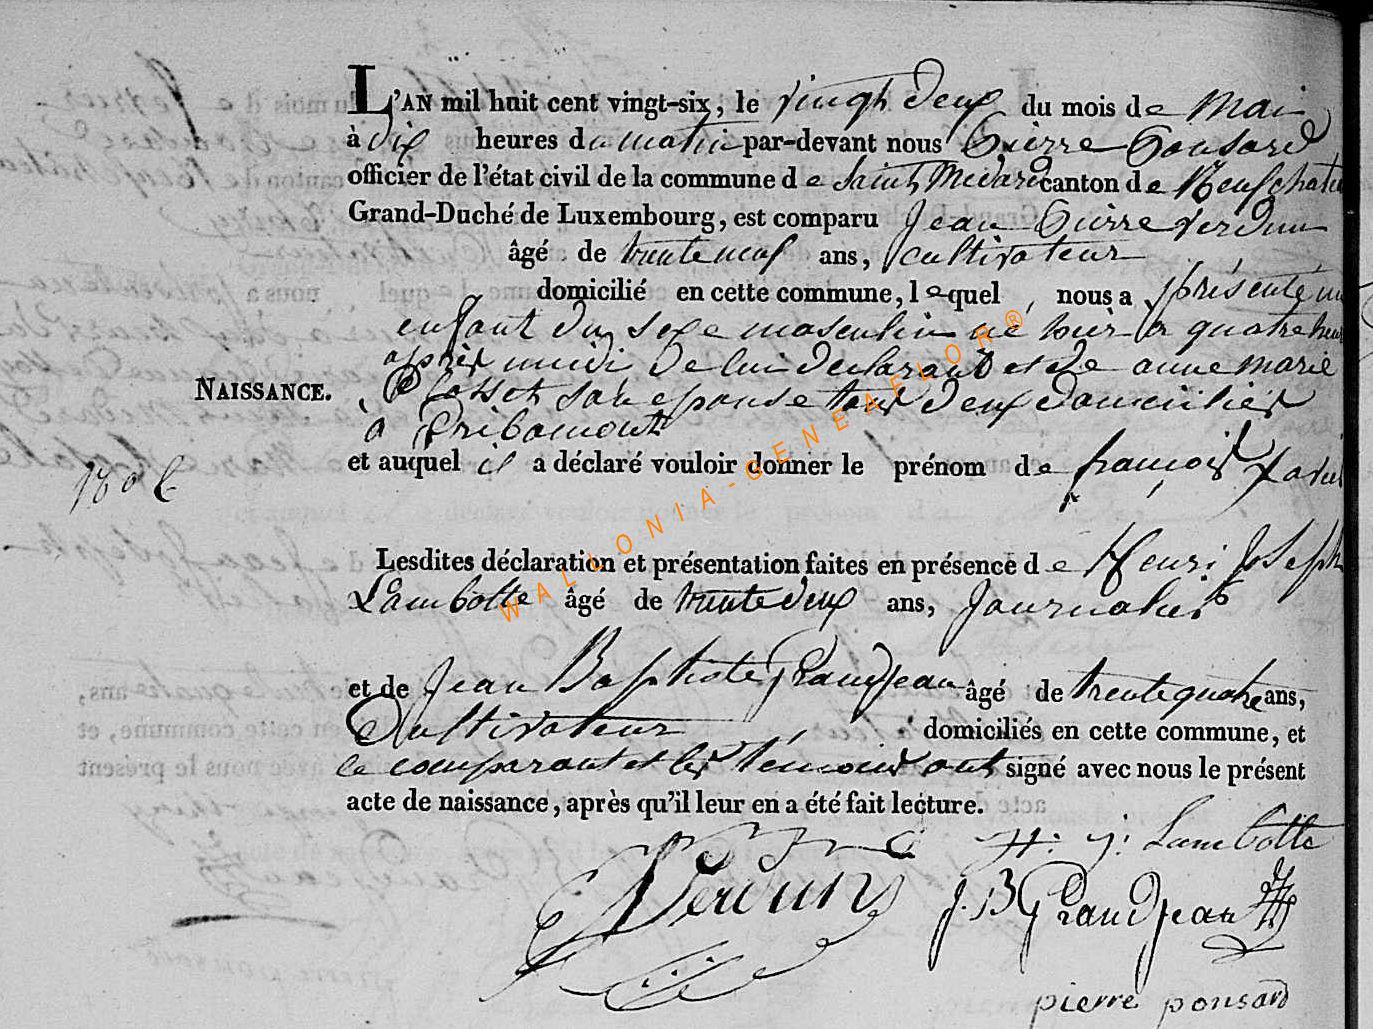 L'AN mil huit cent vingt-six, le vingt deux du mois de Mai
à dix heures du matin par-devant nous Pierre Ponsard
officier de l'état civil de la commune de Saint Medard canton de Neufchateau
Grand-Duché de Luxembourg, est comparu Jean Pierre Verdun
âgé de trente neuf ans, cultivateur
domicilié en cette commune, lequel nous a présenté un
enfant du sexe masculin né hier a quatre heures
après midi de lui déclarant et de anne marie
NAISSANCE.
son epouse tous deux domiciliés
a Pribomont
et auquel il a déclaré vouloir donner le prénom de françois Xavier
Lesdites déclaration et présentation faites en présence de Henri Joseph
Lambotte âgé de trente deux ans, Journalier
et de Jean Baptiste Grandjean âgé de trente quatre ans,
Cultivateur domiciliés en cette commune, et
le comparant et les témoins ont signé avec nous le présent
acte de naissance, après qu'il leur en a été fait lecture.
H: J: Lambotte
Verdun
J. B Grandjean
pierre ponsard
WALLONIA-GENEAFLOR®